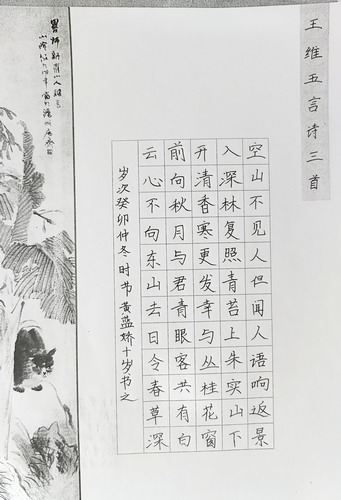 王维五言诗三首
空山不见人但闻人语响返景
入深林复照青苔上朱实山下
开清香寒更发幸与丛桂花窗
前向秋月与君青眼客共有白
云心不向东山去日令春草深
岁次癸卯仲冬时节黄蓝娇十岁书之